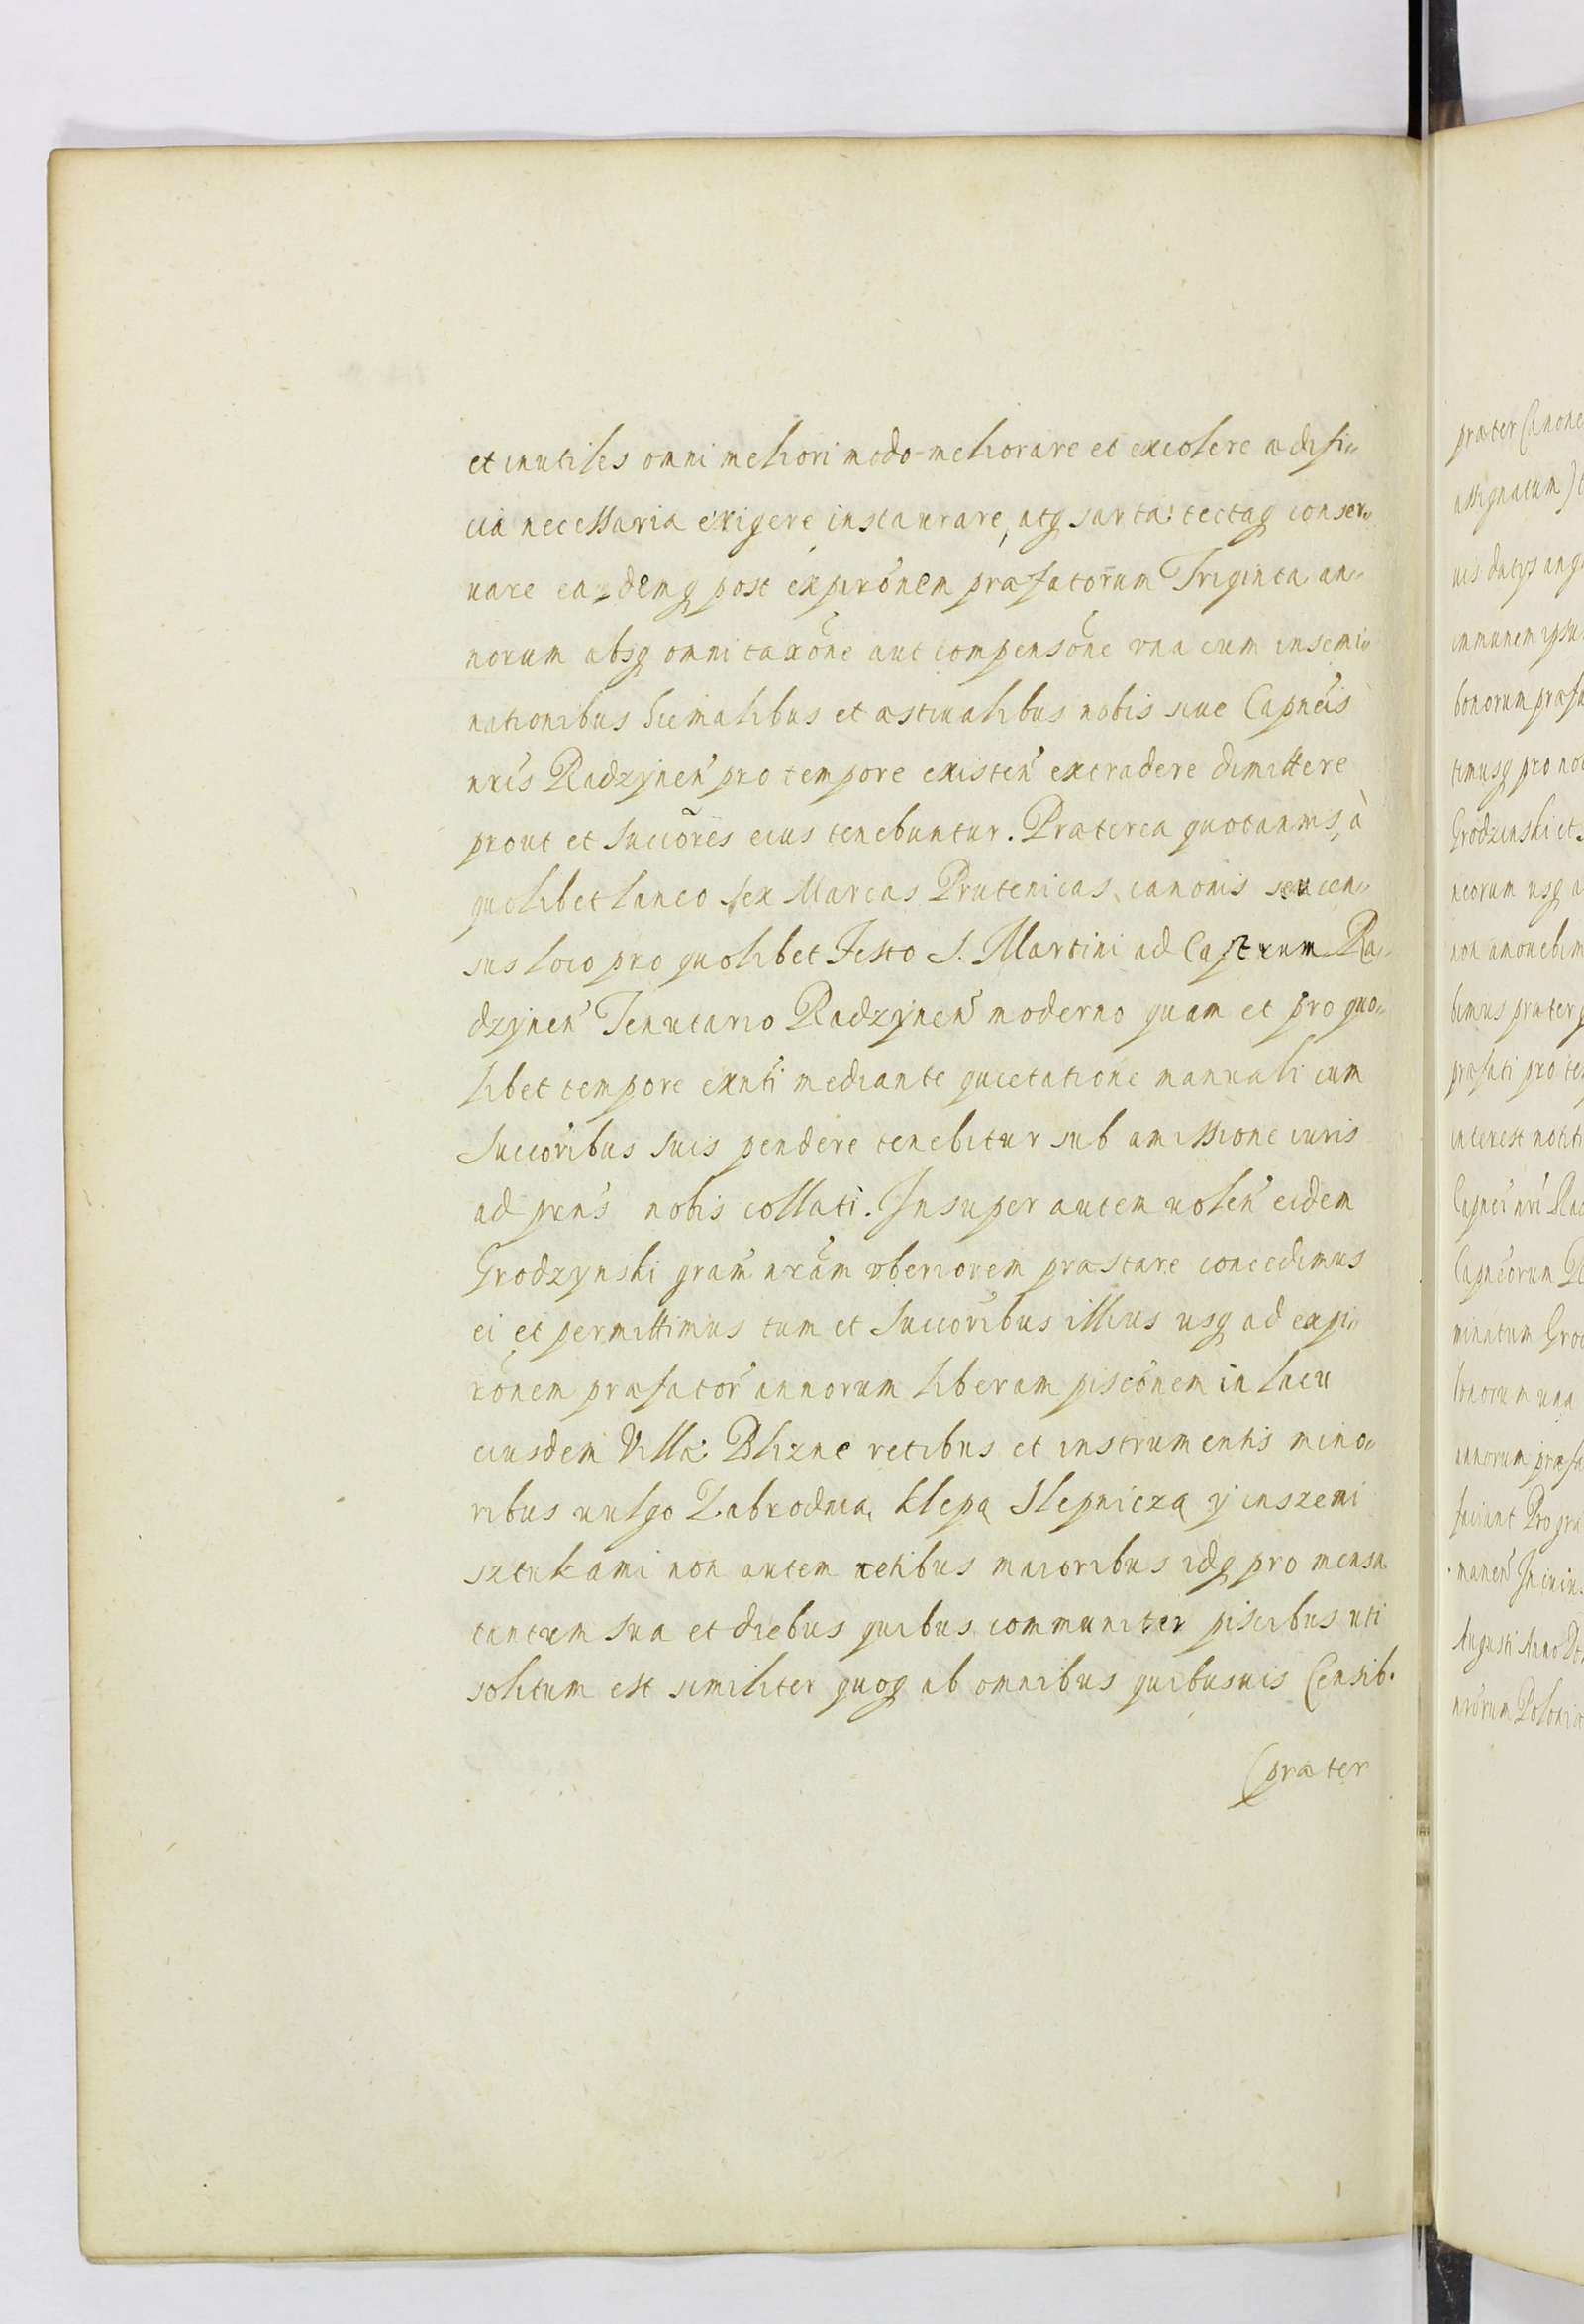 et inutiles omni meliori modo meliorare et excolere ædifi„
cia necessaria erigere instaurare, atq sarta tectaq conser„
uare eademq post expirõnem præfatorum Triginta an„
norum absq omni taxõne aut compensõne vna cum insemi„
nationibus hiemalibus et æstiualibus nobis siue Capneis
nris Radzynen pro tempore existen extradere dimittere
prout et Succõres eius tenebuntur. Præterea quotannis, à
quolibet laneo sex Marcas Prutenicas canonis seu cen„
sus loco pro quolibet Festo S. Martini ad Castrum Ra„
dzynen Tenutario Radzynen moderno quam et pro quo„
libet tempore exnti mediante quietatione manuali cum
Succoribus suis pendere tenebitur sub amissione iuris
ad pns nobis collati. Insuper autem uolen eidem
Grodzynski gram nram vberiorem præstare concedimus
ei et permittimus tum et Succoribus illius usq ad expi„
rõnem præfator annorum liberam piscõnem in lacu
eiusdem Villæ Blizne retibus et instrumentis mino„
ribus uulgo Zabrodnia, Klepa Slepnicza y inszemi
sztukami non autem retibus maioribus idq pro mensa
tantum sua et diebus quibus communiter piscibus uti
solitum est similiter quoq ab omnibus quibusuis Censib.
(præter
præter Canone
assignatum)
uis datys
immunem ipsu
bonorum præfa
timusq pro no
Grodzinski et
neorum usq a
non amouebim
bimus præter
præfati pro te
interest notiti
Capnei nri Rad
Capneorum
minatum Gro
bonorum una
annorum præfa
faciunt Pro
manen In cuiu
Augusti Anno Do
nrorum Poloniæ